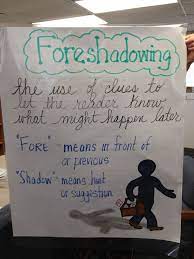 Foreshadowing
the use of clues to
let the reader know
what might happen later
"FORE" means in front of
or previous
"Shadow" means hint
or suggestion